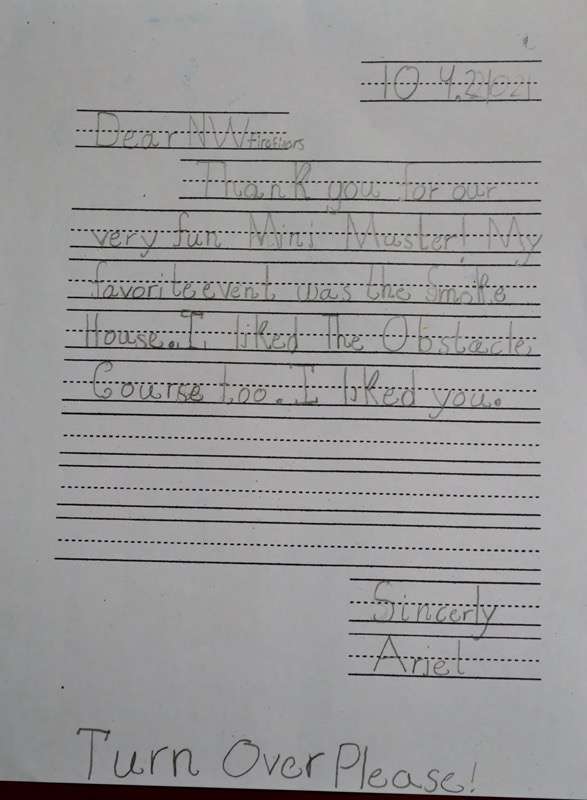 10 4.2021
Dear NW firefiters
Thank you for our
very fun Mini Muster! My
favorite event was the Smoke
House. I liked The Obstacle
Course too. I liked you.
Sincerly
Ariel
Turn Over Please!